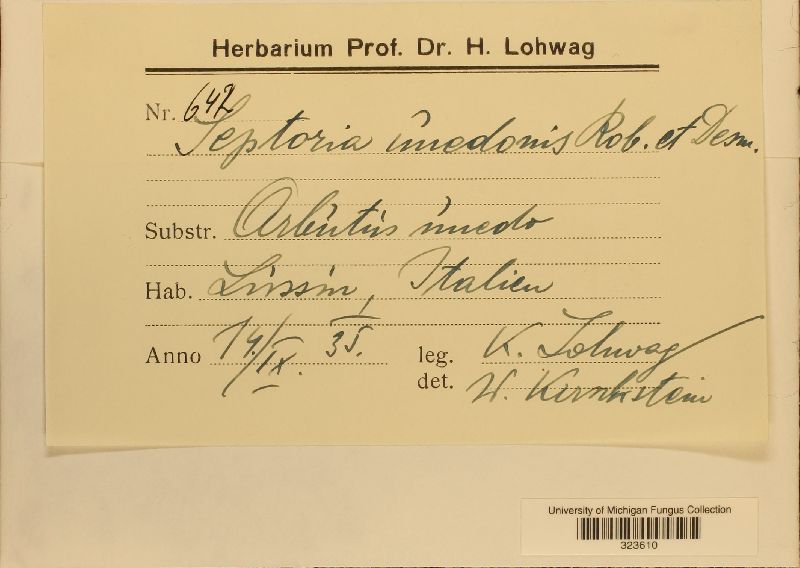 Herbarium Prof. Dr. H. Lohwag
Nr. 642
Septoria unedonis Rob. et Desm.
Substr. Arbutus unedo
Hab. Lussin, Italien
Anno 14/IX. 35. leg. K. Lohwag
det.
University of Michigan Fungus Collection
323610